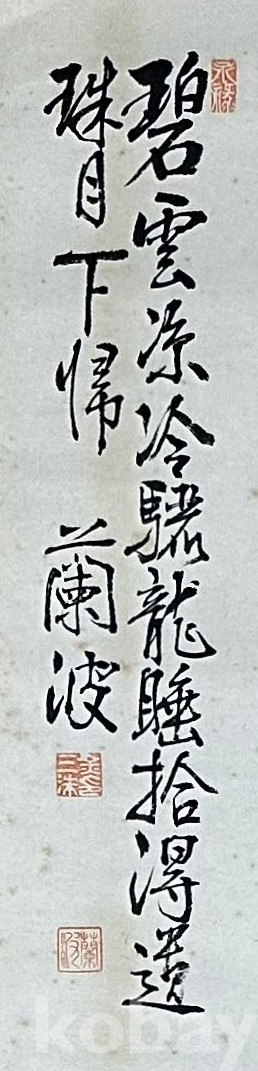 碧雲涼冷驪龍睡拾得遺
珠月下帰 蘭波
蘭波
kobay